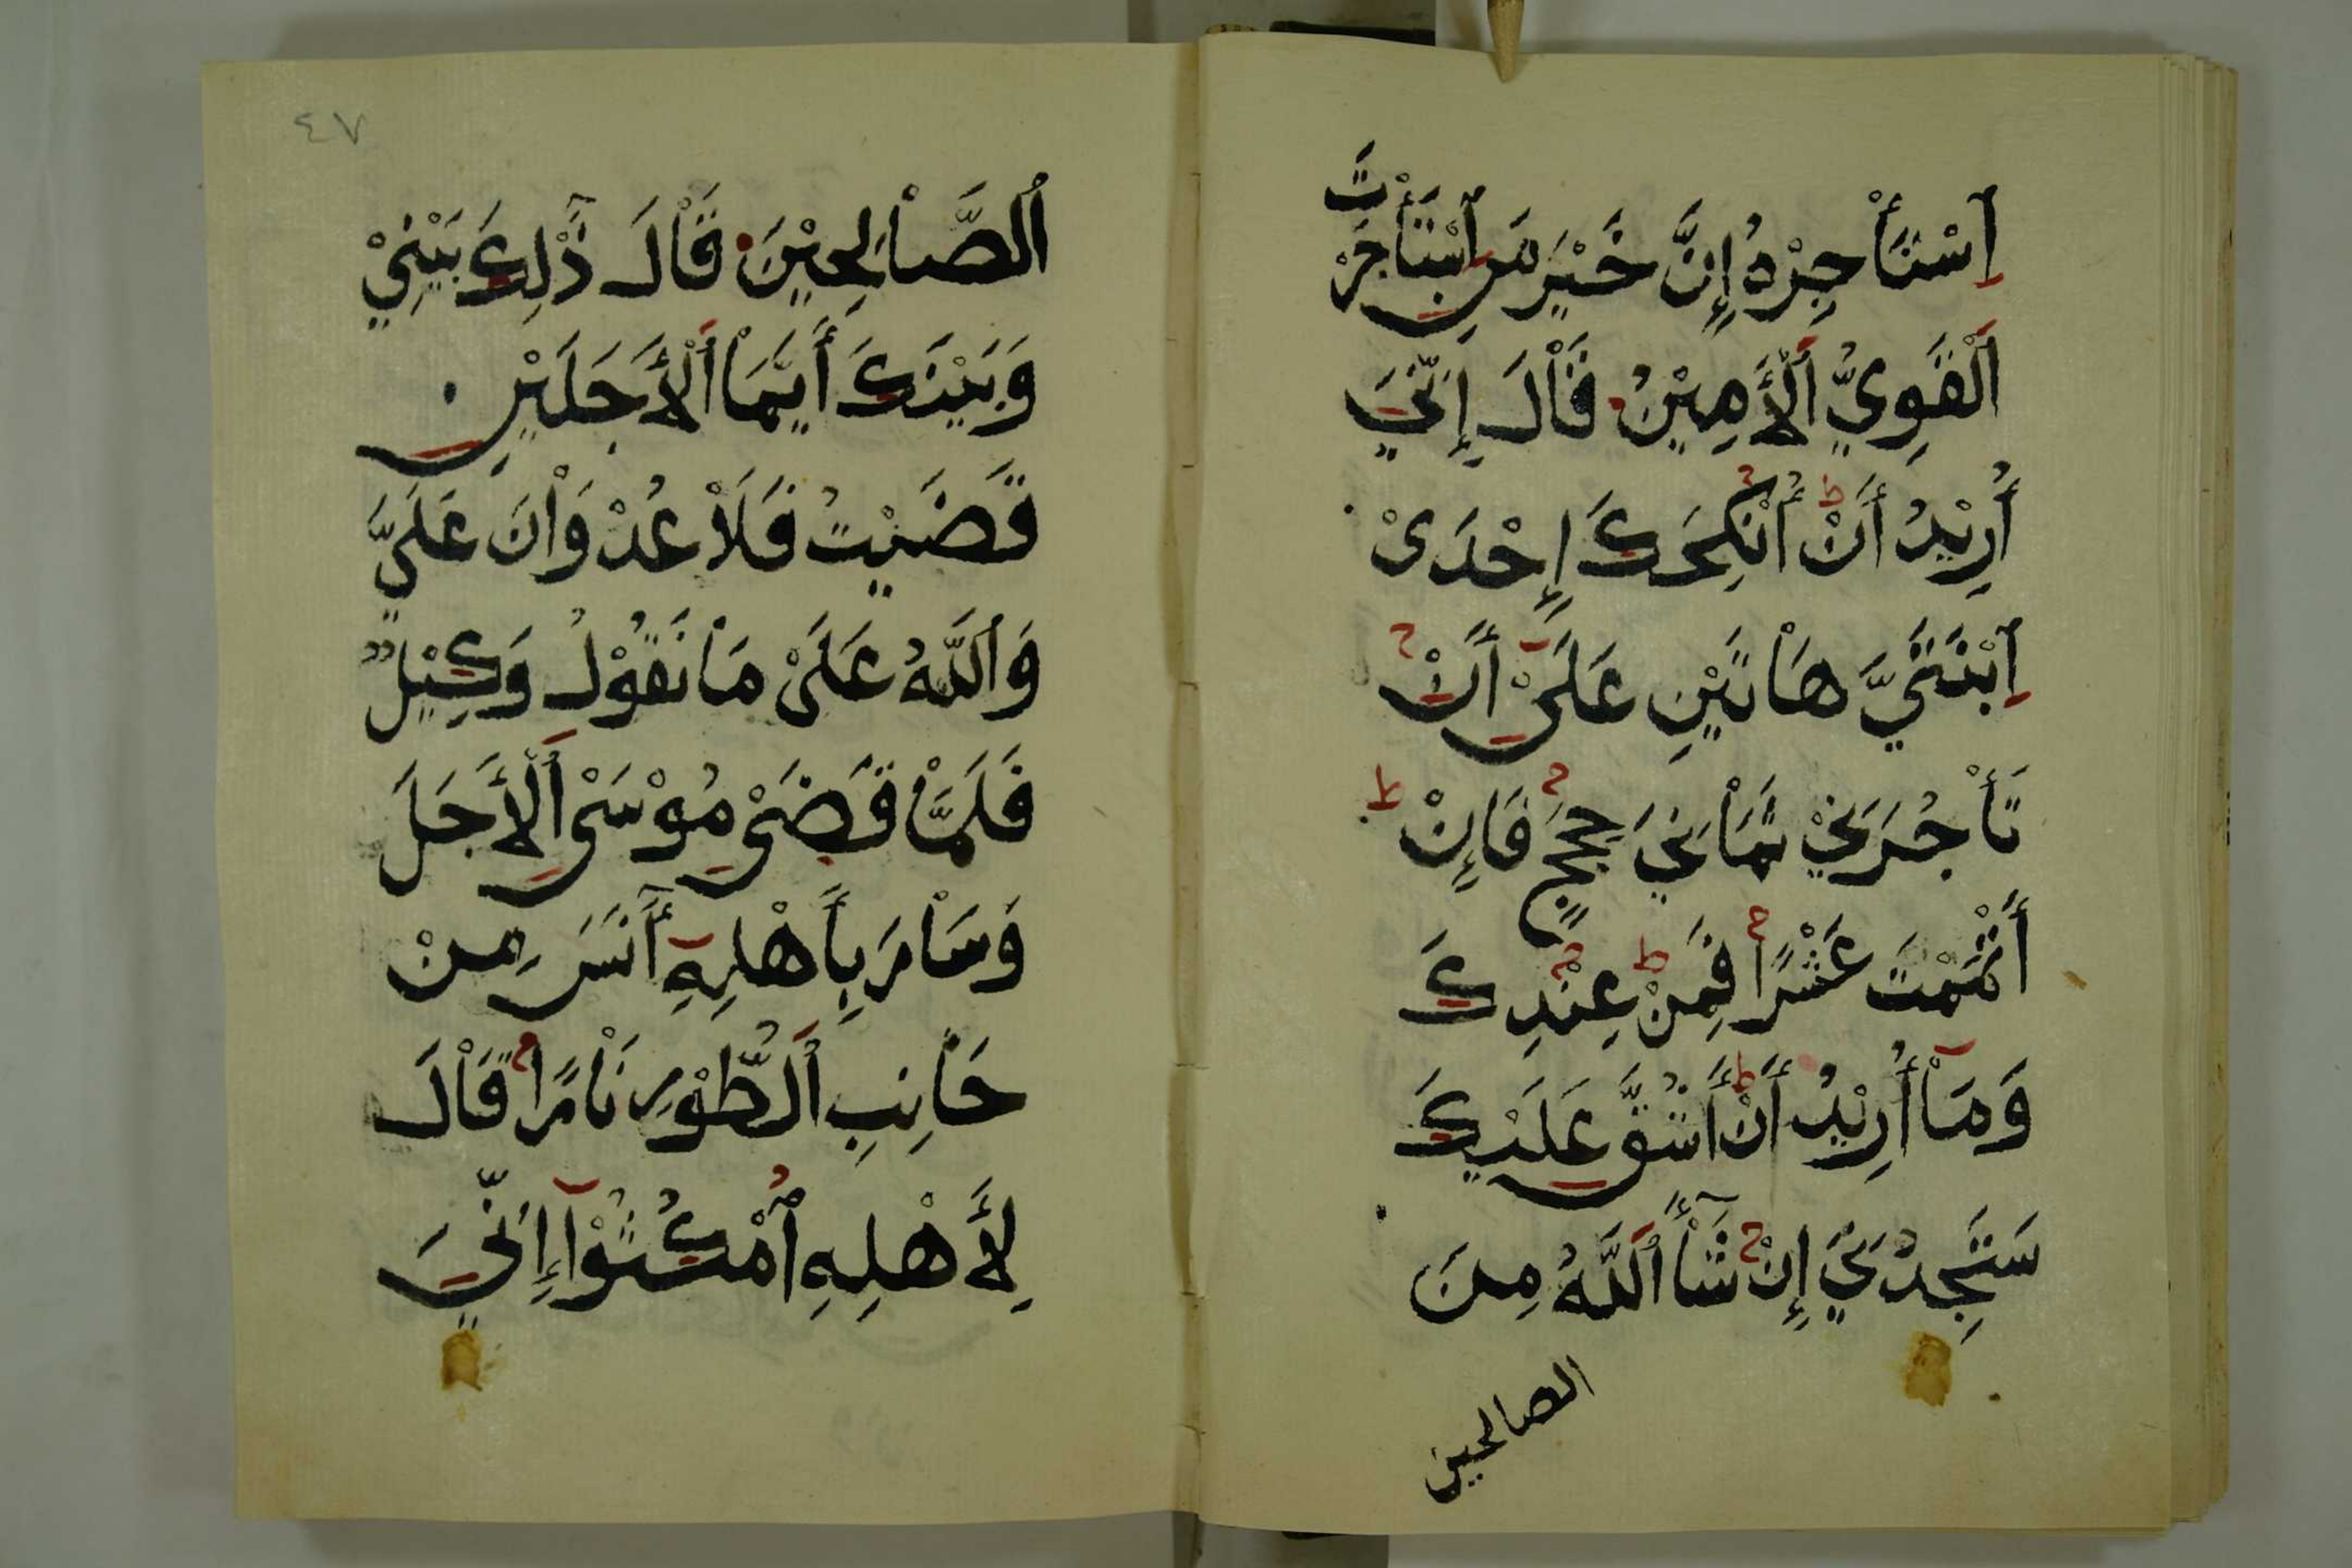 ٱسْتَأْجِرْهُ إِنَّ خَيْرَ مَنِ ٱسْتَأْجَرْتَ
ٱلْقَوِيُّ ٱلْأَمِيْنُ قَاْلَ إِنِّيَ
أُرِيْدُ أَنْ أُنْكِحَكَ إِحْدَىْ
ٱبْنَتَيَّ هَاْتَيْنِ عَلَىْٓ أَنْ
تَأْجُرَنِيْ ثَمَاْنِيَ حِجَجٍ فَإِنْ
أَتْمَمْتَ عَشْرًا فَمِنْ عِنْدِكَ
وَمَآْ أُرِيْدُ أَنْ أَشُقَّ عَلَيْكَ
سَتَجِدُنِيَ إِنْ شَاْءَ ٱللَّهُ مِنَ
الصالحين
٤٧
ٱلصَّاْلِحِيْنَ قَاْلَ ذَٰلِكَ بَيْنِيْ
وَبَيْنَكَ أَيَّمَاْ ٱلْأَجَلَيْنِ
قَضَيْتُ فَلَاْ عُدْوَاْنَ عَلَيَّ
وَٱللَّهُ عَلَىْ مَاْ نَقُوْلُ وَكِيْلٌ
فَلَمَّاْ قَضَىْ مُوْسَىْ ٱلْأَجَلَ
وَسَاْرَ بِأَهْلِهِٓ آنَسَ مِنْ
جَاْنِبِ ٱلطُّوْرِ نَاْرًا قَاْلَ
لِأَهْلِهِ ٱمْكُثُوْآ إِنِّيَ